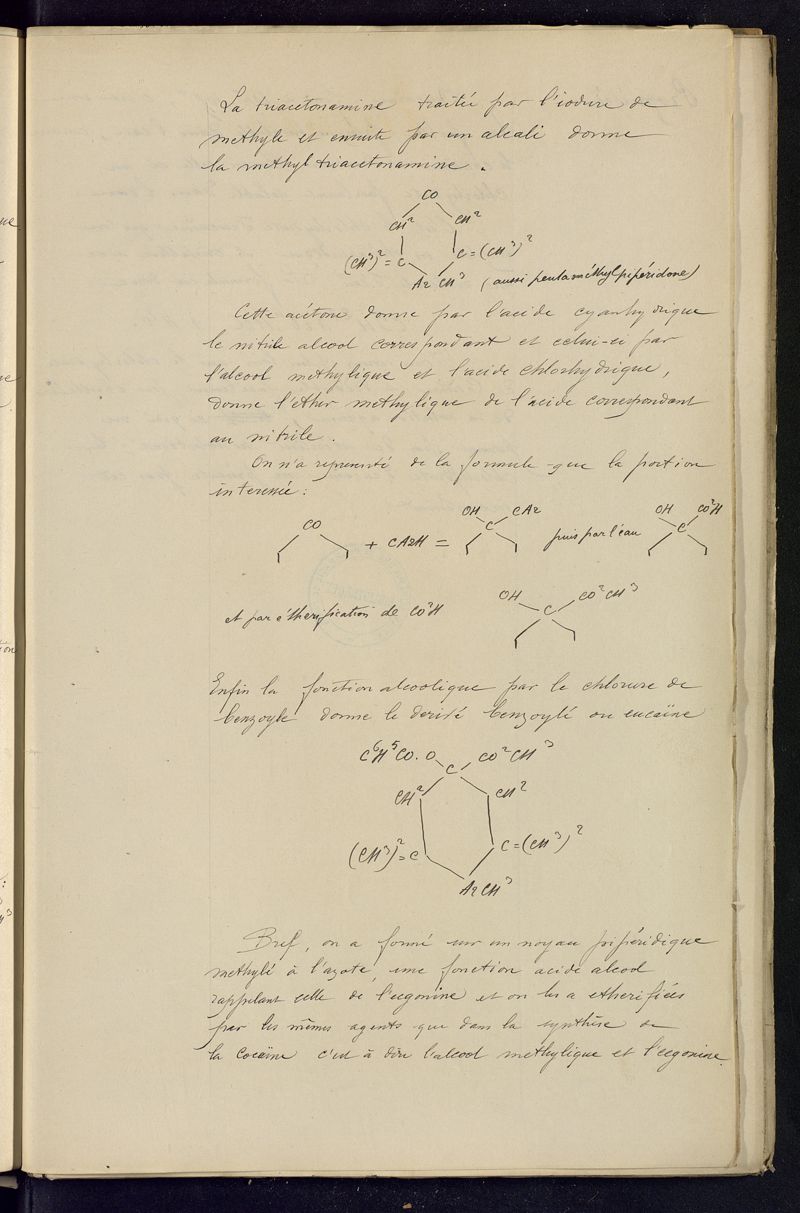 La triacetonamine traitée par l'iodure de
methyle et ensuite par un alcali donne
la methyl triacetonamine.
CO
CH² CH²
(CH³)²=C C=(CH³)²
Az CH³ (aussi pentaméthylpipéridone)
Cette acétone donne par l'acide cyanhydrique
le nitrile alcool correspondant et celui-ci par
l'alcool methylique et l'acide chlorhydrique,
donne l'ether methylique de l'acide correspondant
au nitrile.
On n'a représenté de la formule que la portion
interessée:
CO + CAzH = OH C CAz puis par l'eau OH C CO²H
et par étherification de CO²H OH C CO²CH³
Enfin la fonction alcoolique par le chlorure de
benzoyle donne le derivé benzoylé ou eucaïne
C⁶H⁵CO.O C CO²CH³
CH² CH²
(CH³)²=C C=(CH³)²
Az CH³
Bref, on a formé sur un noyau pipéridique
methylé à l'azote, une fonction acide alcool
rappelant celle de l'ecgonine et on les a etherifiées
par les mêmes agents que dans la synthèse de
la cocaïne c'est à dire l'alcool methylique et l'ecgonine.